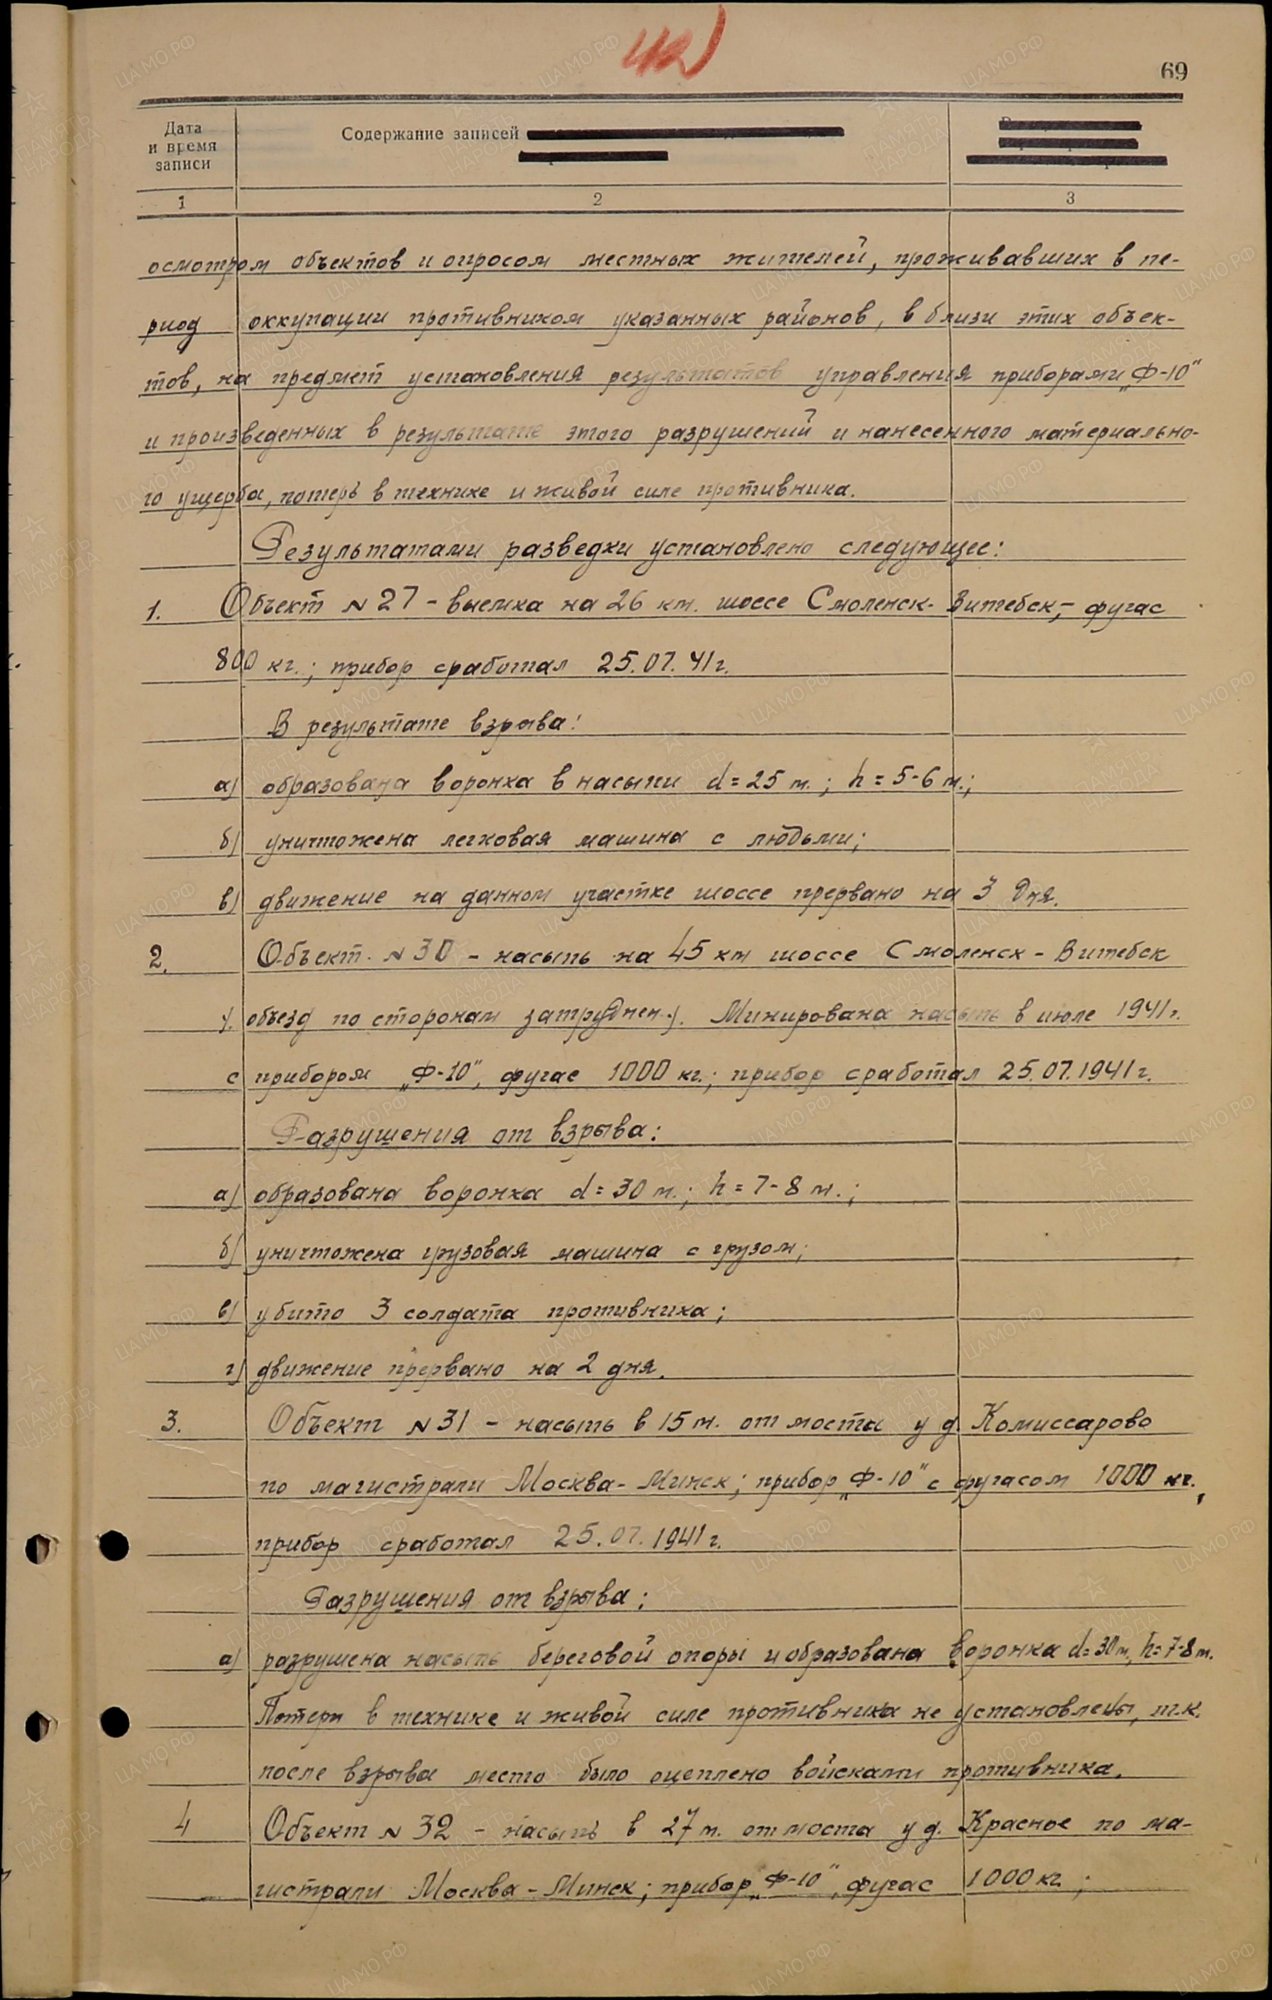 69
Дата и время записи
Содержание записей
1 2 3
осмотром объектов и опросом местных жителей, проживавших в пе-
риод оккупации противником указанных районов, в близи этих объек-
тов, на предмет установления результатов управления приборами „Ф-10"
и произведенных в результате этого разрушений и нанесенного материально-
го ущерба, потерь в технике и живой силе противника.
Результатами разведки установлено следующее:
1. Объект №27 - выемка на 26 км. шоссе Смоленск-Витебск,- фугас
800 кг.; прибор сработал 25.07.41г.
В результате взрыва:
а) образована воронка в насыпи d=25 м.; h=5-6 м.;
б) уничтожена легковая машина с людьми;
в) движение на данном участке шоссе прервано на 3 дня.
2. Объект №30 - насыпь на 45 км шоссе Смоленск - Витебск
объезд по сторонам затруднен. Минирована насыпь в июле 1941г.
с прибором „Ф-10", фугас 1000 кг.; прибор сработал 25.07.1941г.
Разрушения от взрыва:
а) образована воронка d=30 м.; h=7-8 м.;
б) уничтожена грузовая машина с грузом;
в) убито 3 солдата противника;
г) движение прервано на 2 дня.
3. Объект №31 - насыпь в 15 м. от моста у д. Комиссарово
по магистрали Москва-Минск; прибор „Ф-10" с фугасом 1000 кг.,
прибор сработал 25.07.1941г.
Разрушения от взрыва:
а) разрушена насыпь береговой опоры и образована воронка d=30м, h=7-8м.
Потери в технике и живой силе противника не установлены, т.к.
после взрыва место было оцеплено войсками противника.
4 Объект №32 - насыпь в 27 м. от моста у д. Красное по ма-
гистрали Москва-Минск; прибор „Ф-10", фугас 1000 кг;